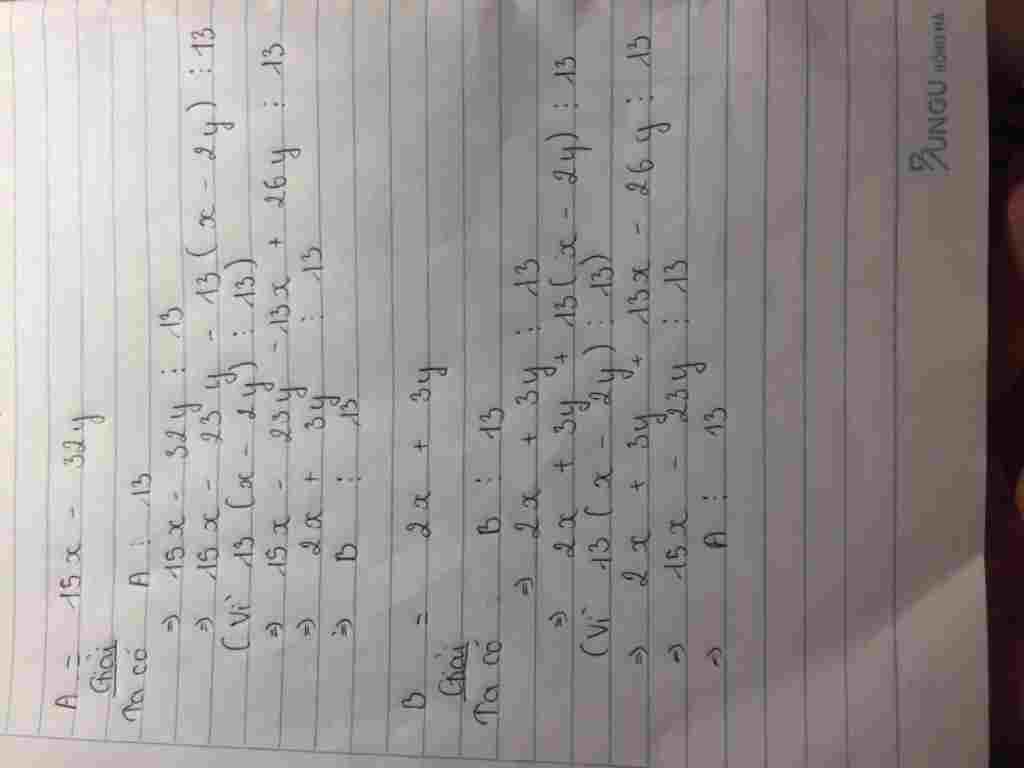 A = 15x - 32y
Giải
Ta có A ⋮ 13
=> 15x - 32y ⋮ 13
=> 15x - 23y - 13(x - 2y) ⋮ 13
(Vì 13(x - 2y) ⋮ 13)
=> 15x - 23y - 13x + 26y ⋮ 13
=> 2x + 3y ⋮ 13
=> B ⋮ 13
B = 2x + 3y
Giải
Ta có B ⋮ 13
=> 2x + 3y ⋮ 13
=> 2x + 3y + 13(x - 2y) ⋮ 13
(Vì 13(x - 2y) ⋮ 13)
=> 2x + 3y + 13x - 26y ⋮ 13
=> 15x - 23y ⋮ 13
=> A ⋮ 13
UNGU HỒNG HÀ